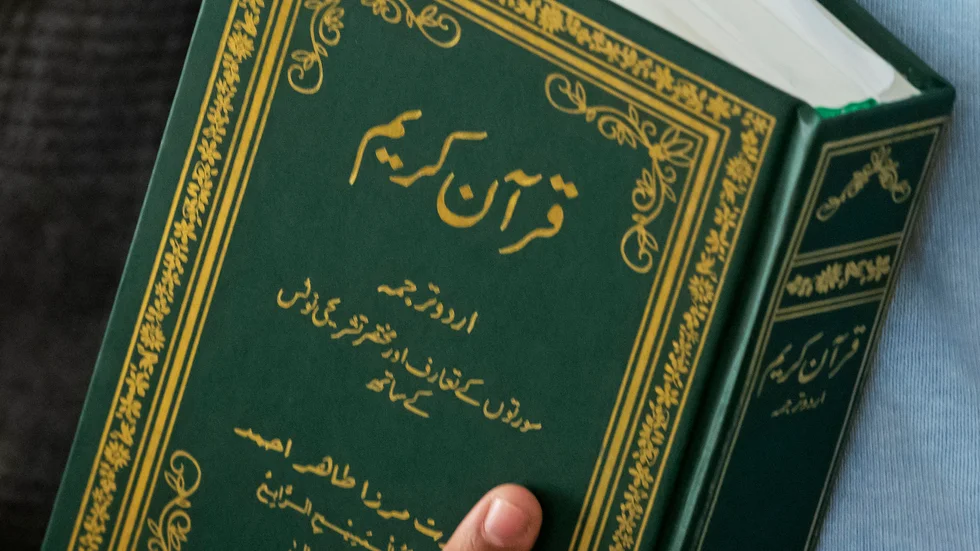 قرآن کریم
اردو ترجمہ
سورتوں کے تعارف اور مختصر تشریحی نوٹس
کے ساتھ
مرزا طاہر احمد
قرآن کریم
اردو ترجمہ